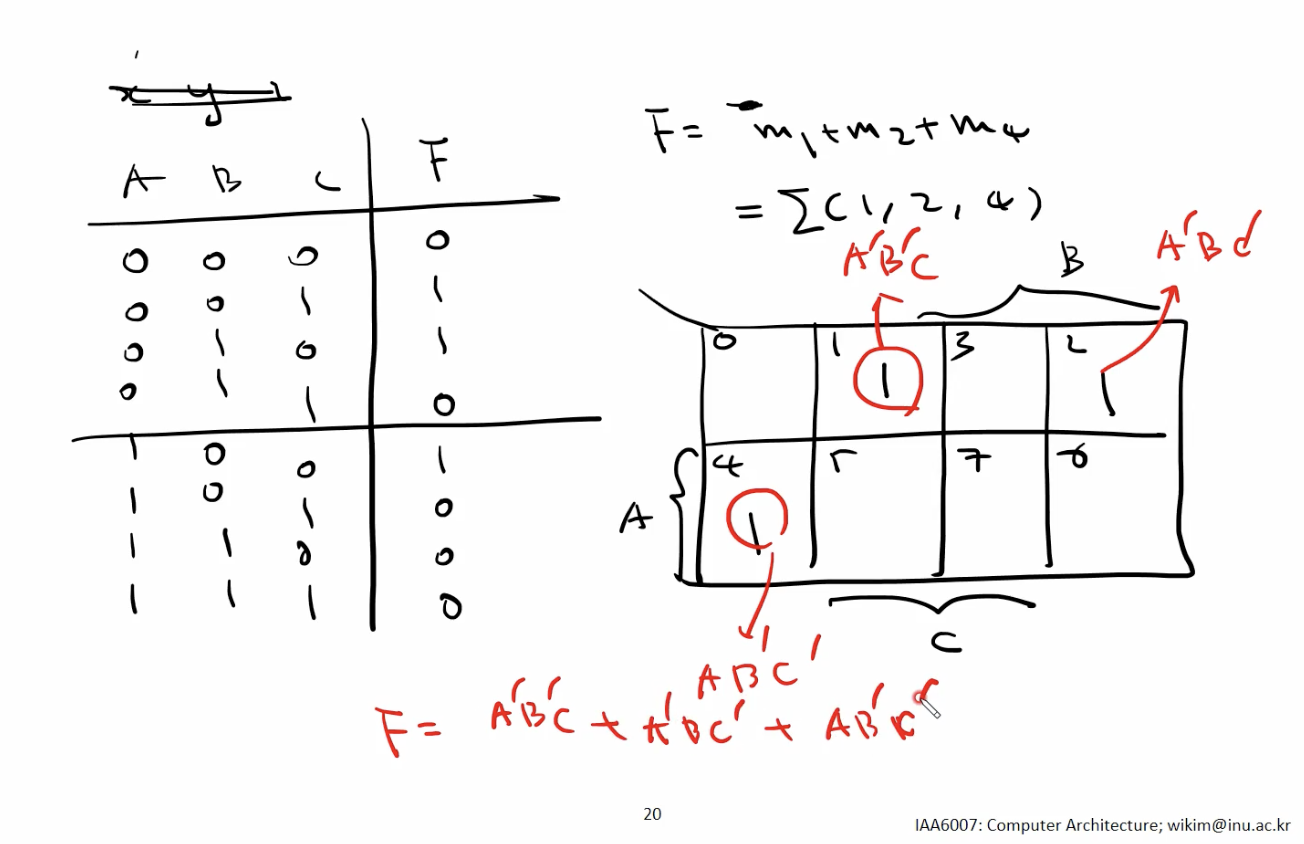 x y z
A B C F
0 0 0 0
0 0 1 1
0 1 0 1
0 1 1 0
1 0 0 1
1 0 1 0
1 1 0 0
1 1 1 0
F = m1+m2+m4
= Σ(1, 2, 4)
A'B'C
B
A'BC'
0 1 3 2
1 1
A
4 5 7 6
1
C
AB'C'
F = A'B'C + A'BC' + AB'C'
20
IAA6007: Computer Architecture; wikim@inu.ac.kr